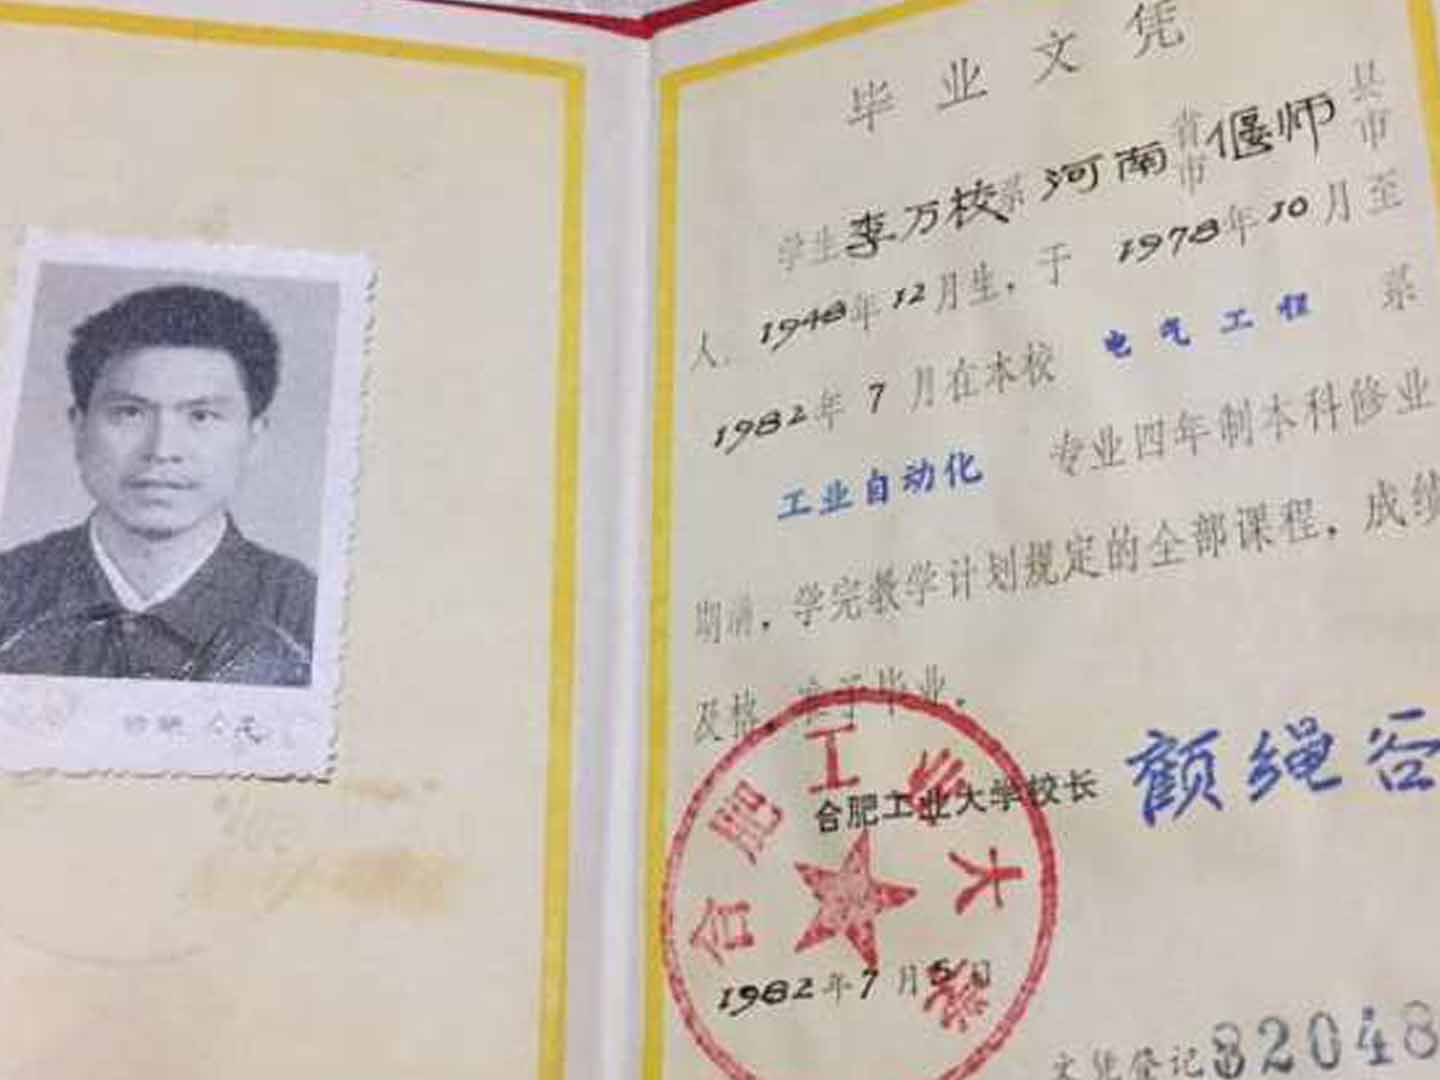 毕业文凭
学生李万校系河南省市偃师县市
人，1948年12月生，于1978年10月至
1982年7月在本校电气工程系
工业自动化专业四年制本科修业
期满，学完教学计划规定的全部课程，成绩
及格，准予毕业。
合肥工业大学校长 顾绳谷
合肥工业大学
1982年7月5日
文凭登记 82048